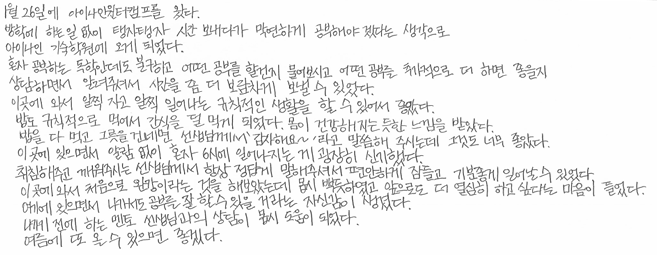 1월 26일에 아이나인윈터캠프를 왔다.
방학에 하는일 없이 탱자탱자 시간 보내다가 막연하게 공부해야 겠다는 생각으로
아이나인 기숙학원에 오게 되었다.
혼자 공부하는 독학인데도 불구하고 어떤 공부를 할건지 물어보시고 어떤 공부를 추가적으로 더 하면 좋을지
상담하면서 알려주셔서 시간을 좀 더 보람차게 보낼 수 있었다.
이곳에 와서 일찍 자고 일찍 일어나는 규칙적인 생활을 할 수 있어서 좋았다.
밥도 규칙적으로 먹어서 간식을 덜 먹게 되었다. 몸이 건강해지는듯한 느낌을 받았다.
밥을 다 먹고 그릇을 건네면 선생님께서 '감사해요~'라고 말씀해 주시는데 그것도 너무 좋았다.
이곳에 있으면서 알람 없이 혼자 6시에 일어나지는 게 굉장히 신기했다.
취침해주고 깨워주시는 선생님께서 항상 정답게 말해주셔서 편안하게 잠들고 기분좋게 일어날 수 있었다
이곳에 와서 처음으로 완강이라는 것을 해보았는데 몹시 뿌듯하였고 앞으로도 더 열심히 하고 싶다는 마음이 들었다.
여기에 있으면서 나에게도 공부를 잘 할 수 있을 거라는 자신감이 생겼다.
나에게 전에 하는 멘토 선생님과의 상담이 몹시 도움이 되었다.
여름에 또 올 수 있으면 좋겠다.